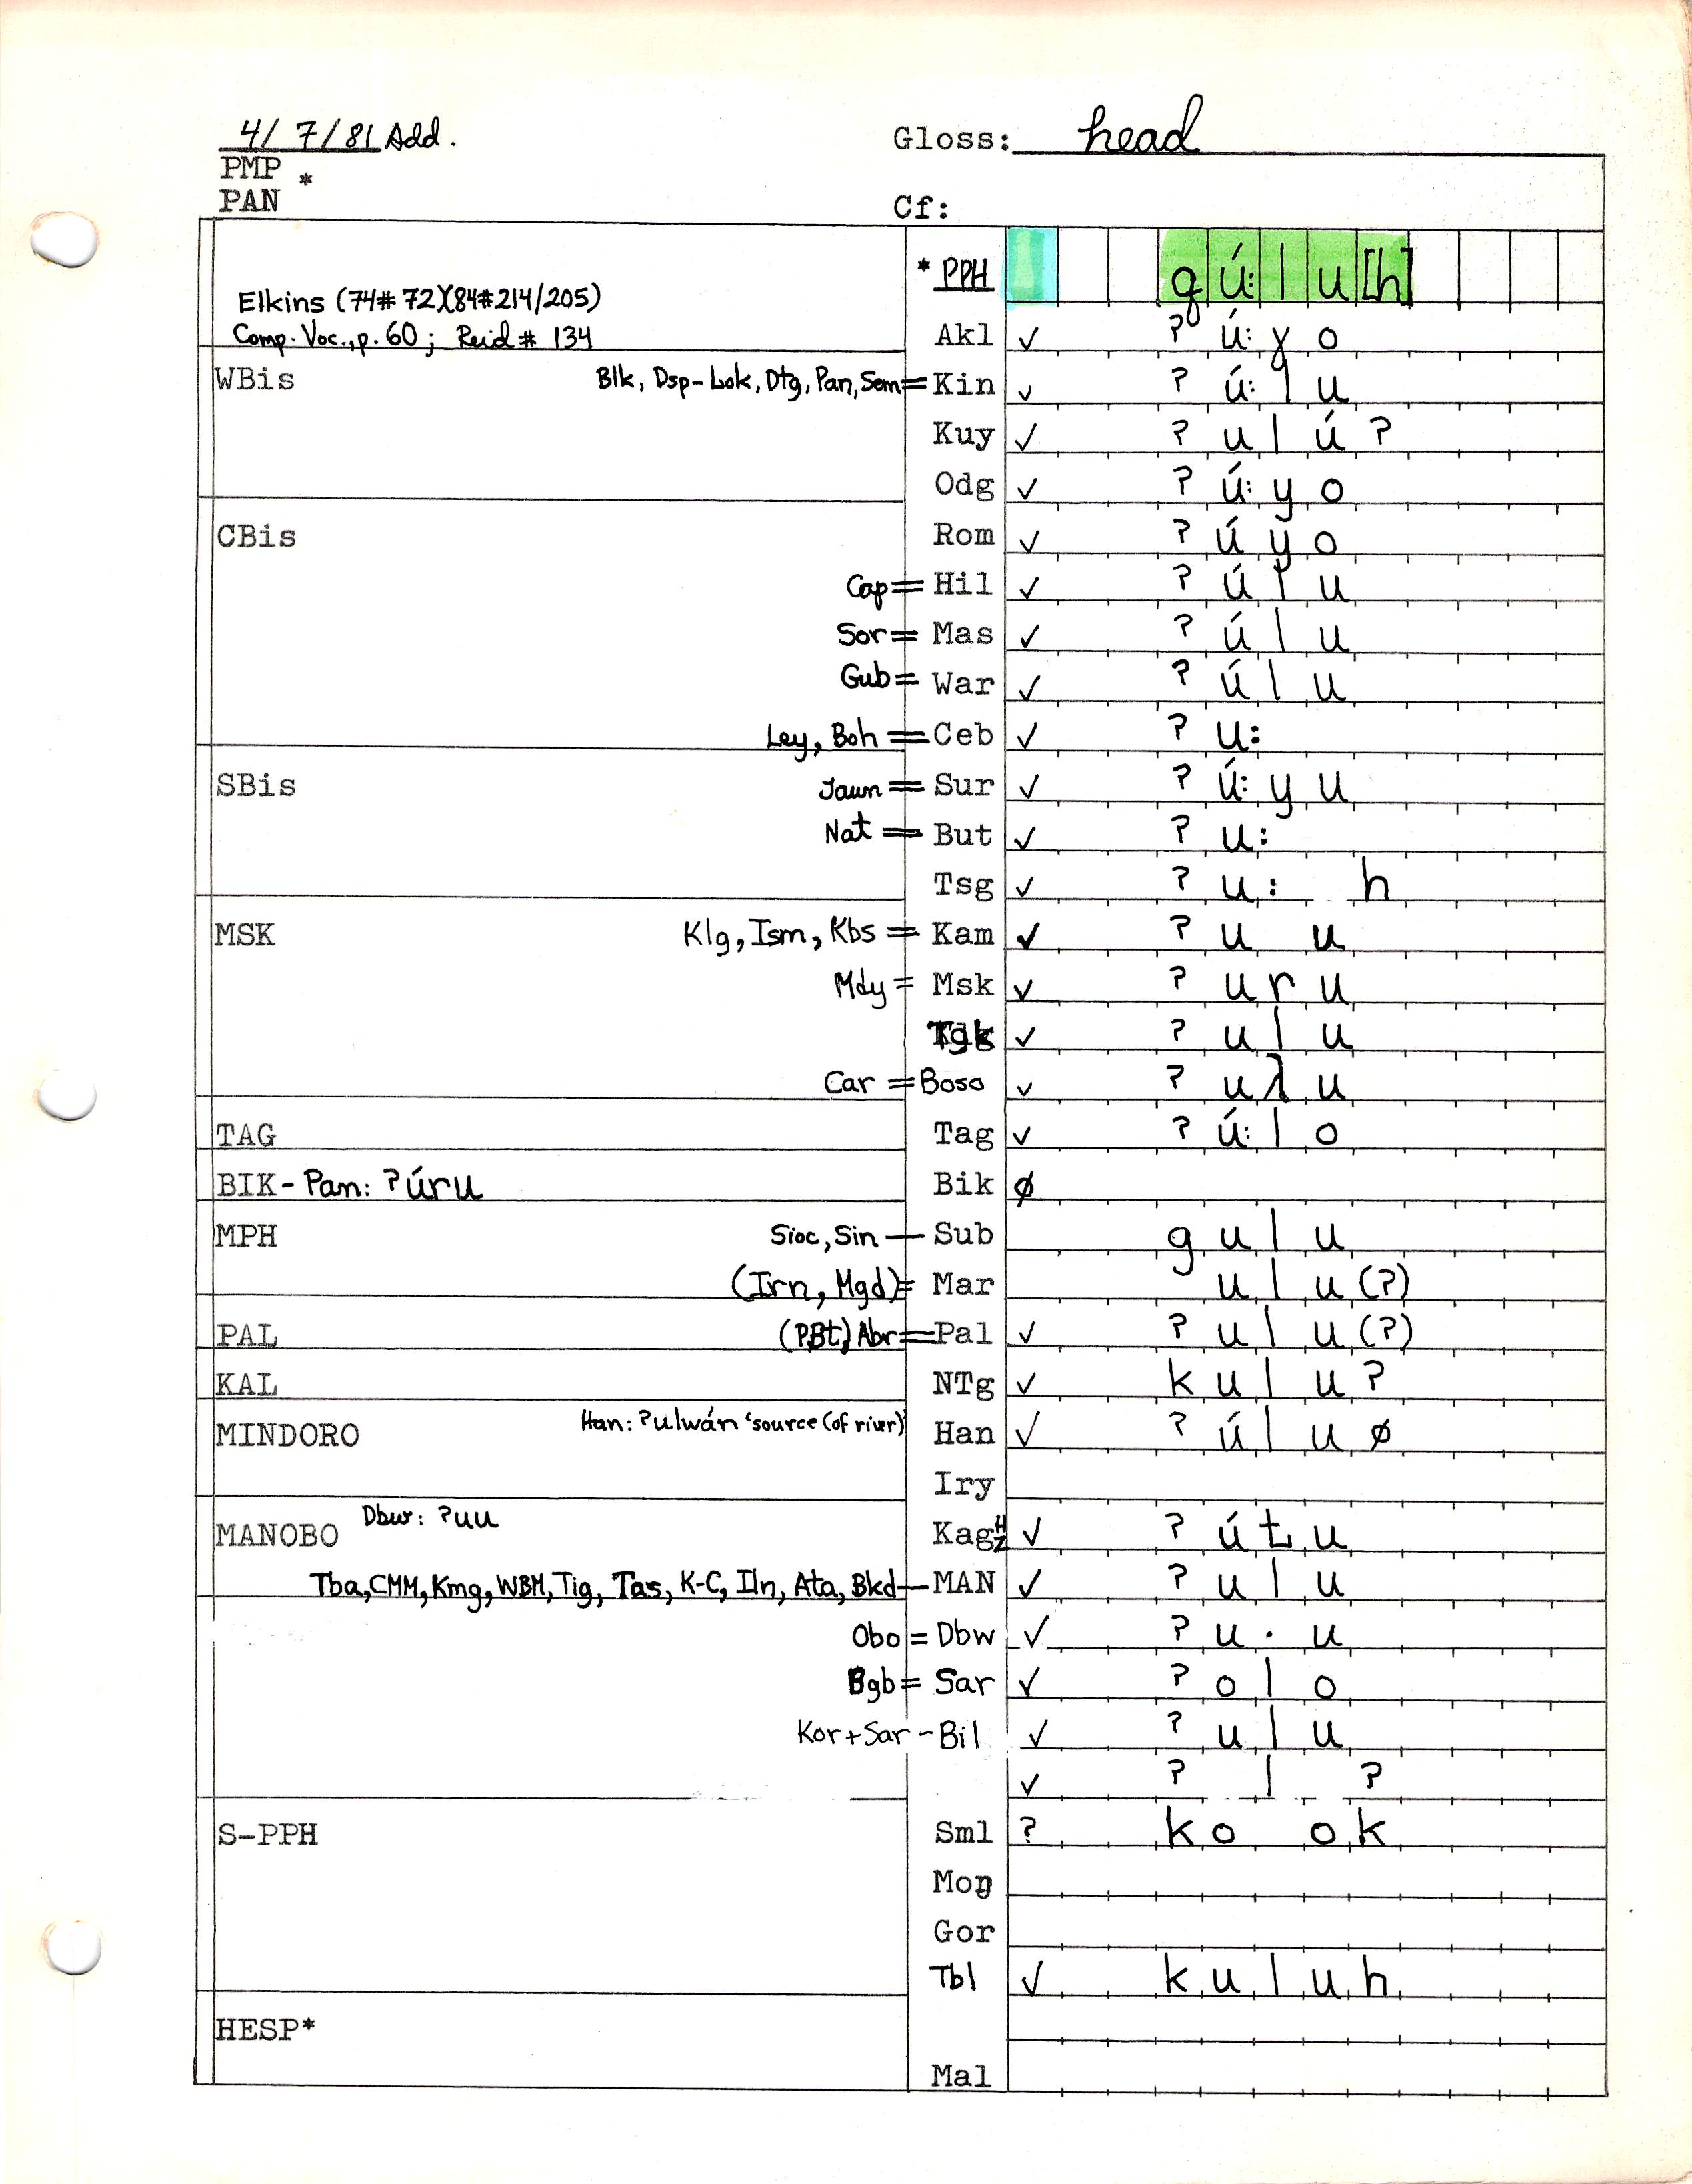 4/7/81 Add. Gloss: head
PMP *
PAN Cf:
* PPH q ú: l u [h]
Elkins (74# 72)(84#214/205)
Comp. Voc., p. 60; Reid # 134 Akl ✓ ʔ ú: ɣ o
WBis Blk, Dsp-Lok, Dtg, Pan, Sem = Kin ✓ ʔ ú: l u
Kuy ✓ ʔ u l ú ʔ
Odg ✓ ʔ ú: y o
CBis Rom ✓ ʔ ú y o
Cap = Hil ✓ ʔ ú l u
Sor = Mas ✓ ʔ ú l u
Gub = War ✓ ʔ ú l u
Ley, Boh = Ceb ✓ ʔ u:
SBis Jaun = Sur ✓ ʔ ú: y u
Nat = But ✓ ʔ u:
Tsg ✓ ʔ u: h
MSK Klg, Ism, Kbs = Kam ✓ ʔ u u
Mdy = Msk ✓ ʔ u r u
Tgk ✓ ʔ u l u
Car = Boso ✓ ʔ u λ u
TAG Tag ✓ ʔ ú: l o
BIK - Pan: ʔúru Bik ∅
MPH Sioc, Sin — Sub g u l u
(Irn, Mgd) = Mar u l u (ʔ)
PAL (PBt) Abr = Pal ✓ ʔ u l u (ʔ)
KAL NTg ✓ k u l u ʔ
MINDORO Han: ʔulwán 'source (of river)' Han ✓ ʔ ú l u ∅
Iry
MANOBO Dbw: ʔuu Kag H/Z ✓ ʔ ú t u
Tba, CMM, Kmg, WBM, Tig, Tas, K-C, Iln, Ata, Bkd — MAN ✓ ʔ u l u
Obo = Dbw ✓ ʔ u · u
Bgb = Sar ✓ ʔ o l o
Kor + Sar - Bil ✓ ʔ u l u
✓ ʔ l ʔ
S-PPH Sml ? k o o k
Mon
Gor
Tbl ✓ k u l u h
HESP*
Mal